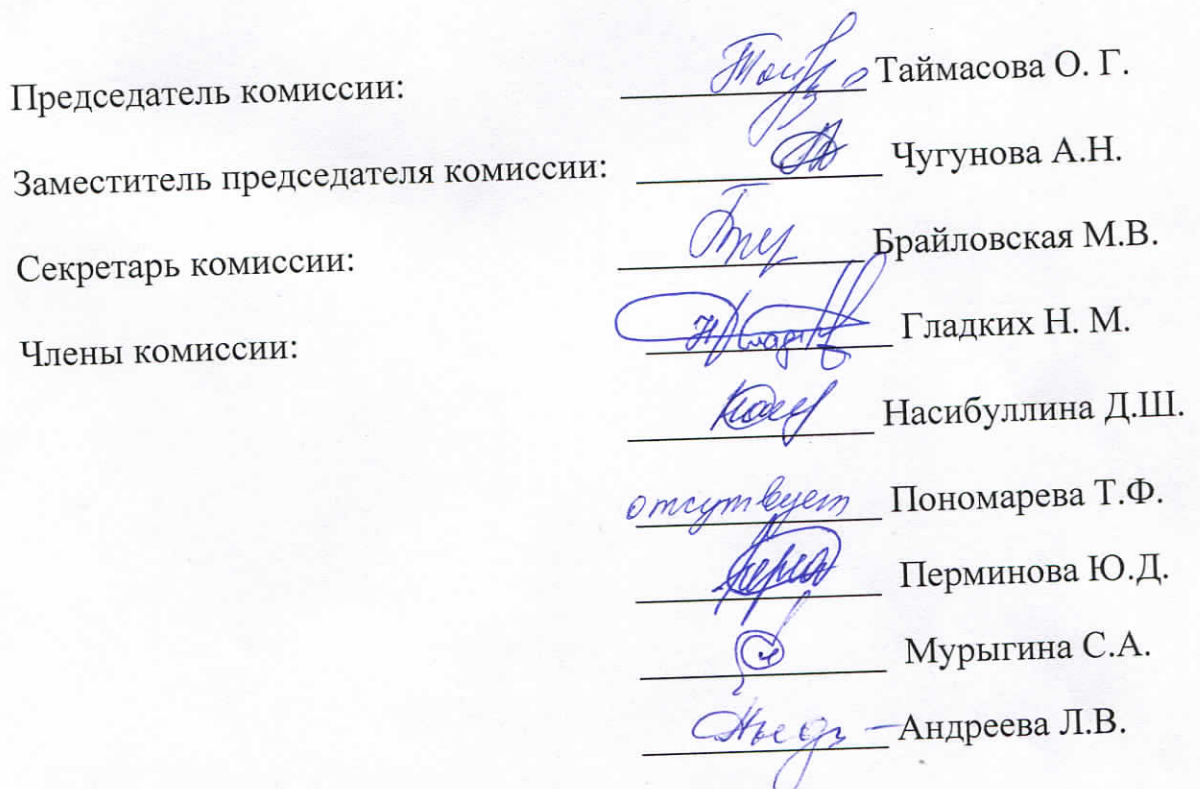 Председатель комиссии: Таймасова О. Г.
Заместитель председателя комиссии: Чугунова А.Н.
Секретарь комиссии: Брайловская М.В.
Члены комиссии: Гладких Н. М.
Насибуллина Д.Ш.
отсутвует Пономарева Т.Ф.
Перминова Ю.Д.
Мурыгина С.А.
Андреева Л.В.